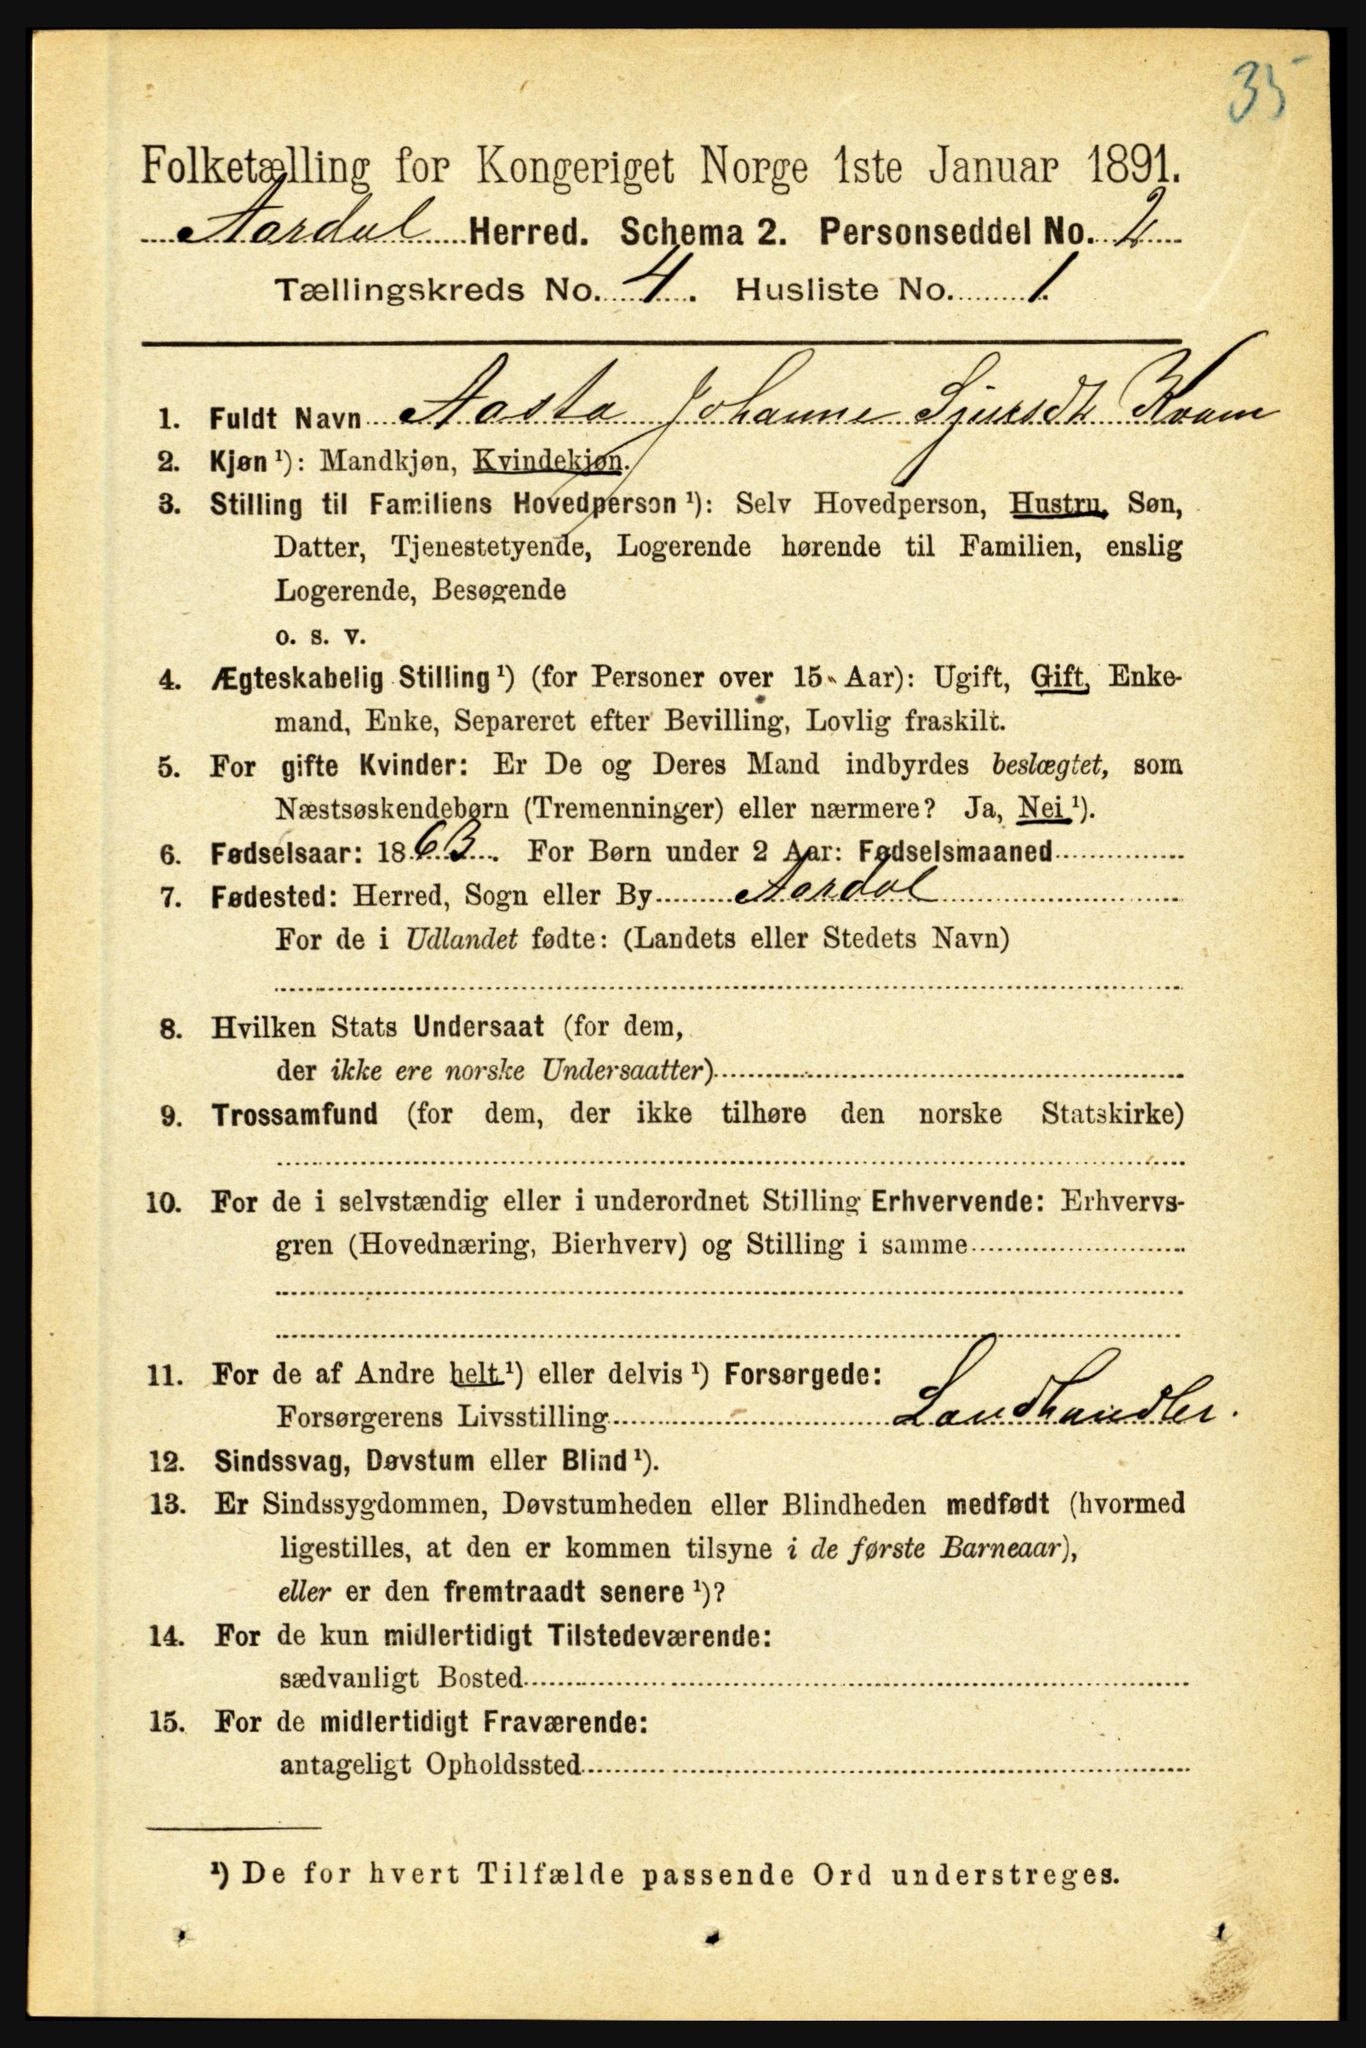 35
Folketælling for Kongeriget Norge 1ste Januar 1891.
Aardal Herred. Schema 2. Personseddel No. 2
Tællingskreds No. 4. Husliste No. 1.
1. Fuldt Navn Aasta Johanne Sjursdtr Kvam
2. Kjøn ¹): Mandkjøn, Kvindekjøn.
3. Stilling til Familiens Hovedperson ¹): Selv Hovedperson, Hustru, Søn,
Datter, Tjenestetyende, Logerende hørende til Familien, enslig
Logerende, Besøgende
o. s. v.
4. Ægteskabelig Stilling ¹) (for Personer over 15 Aar): Ugift, Gift, Enke-
mand, Enke, Separeret efter Bevilling, Lovlig fraskilt.
5. For gifte Kvinder: Er De og Deres Mand indbyrdes beslægtet, som
Næstsøskendebørn (Tremenninger) eller nærmere? Ja, Nei ¹).
6. Fødselsaar: 1863. For Børn under 2 Aar: Fødselsmaaned
7. Fødested: Herred, Sogn eller By Aardal
For de i Udlandet fødte: (Landets eller Stedets Navn)
8. Hvilken Stats Undersaat (for dem,
der ikke ere norske Undersaatter)
9. Trossamfund (for dem, der ikke tilhøre den norske Statskirke)
10. For de i selvstændig eller i underordnet Stilling Erhvervende: Erhvervs-
gren (Hovednæring, Bierhverv) og Stilling i samme
11. For de af Andre helt ¹) eller delvis ¹) Forsørgede:
Forsørgerens Livsstilling Landhandler.
12. Sindssvag, Døvstum eller Blind ¹).
13. Er Sindssygdommen, Døvstumheden eller Blindheden medfødt (hvormed
ligestilles, at den er kommen tilsyne i de første Barneaar),
eller er den fremtraadt senere ¹)?
14. For de kun midlertidigt Tilstedeværende:
sædvanligt Bosted
15. For de midlertidigt Fraværende:
antageligt Opholdssted
¹) De for hvert Tilfælde passende Ord understreges.